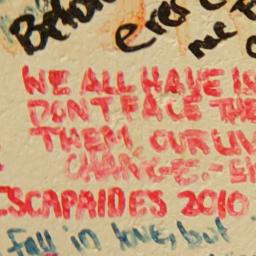 Before
ever
me
WE ALL HAVE IS
DON'T FACE THE
THEM, OUR LIV
CHANGE.-E
ESCAPAIDES 2010
Fall in love, but